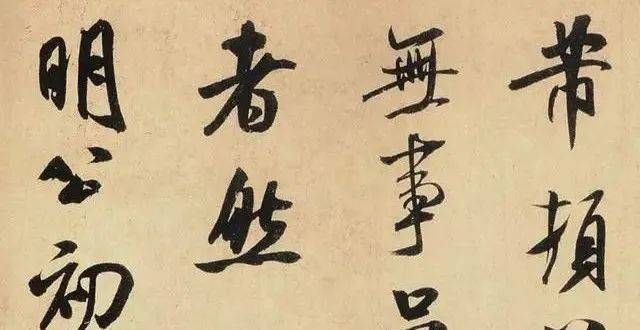 芾頓
無事
者然
明公初